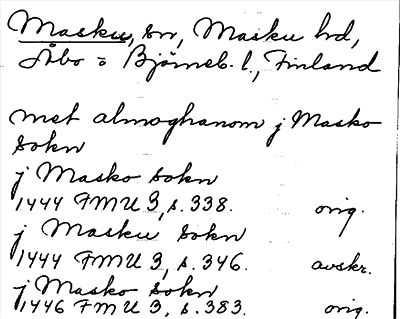 Masku, sn, Masku hd,
Åbo = Björneb. l., Finland
met almoghanom j Masko
sokn
j Masko sokn
1444 FMU 3, s. 338. orig.
j Masku sokn
1444 FMU 3, s. 346. avskr.
j Masko sokn
1446 FMU 3, s. 383. orig.